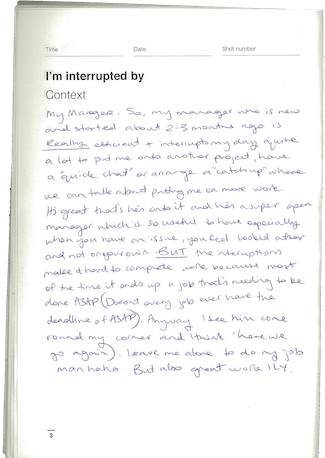 Time
Date
Shot number
I'm interrupted by
Context
My Manager. So, my manager who is new
and started about 2-3 months ago is
Really efficient + interrupts my day quite
a lot to put me onto another project, have
a "quick chat" or arrange a "catch up" where
we can talk about putting me on more work.
It's great that he's onto it and he's a super open
manager which is so useful to have especially
when you have an issue, you feel looked after
and not on your own. BUT the interruptions
make it hard to complete work because most
of the time it ends up a job that's needing to be
done ASAP (Doesn't every job ever have the
deadline of ASAP). Anyway I see him come
round my corner and I think 'here we
go again'). Leave me alone to do my job
man haha. But also great work ILY.
3